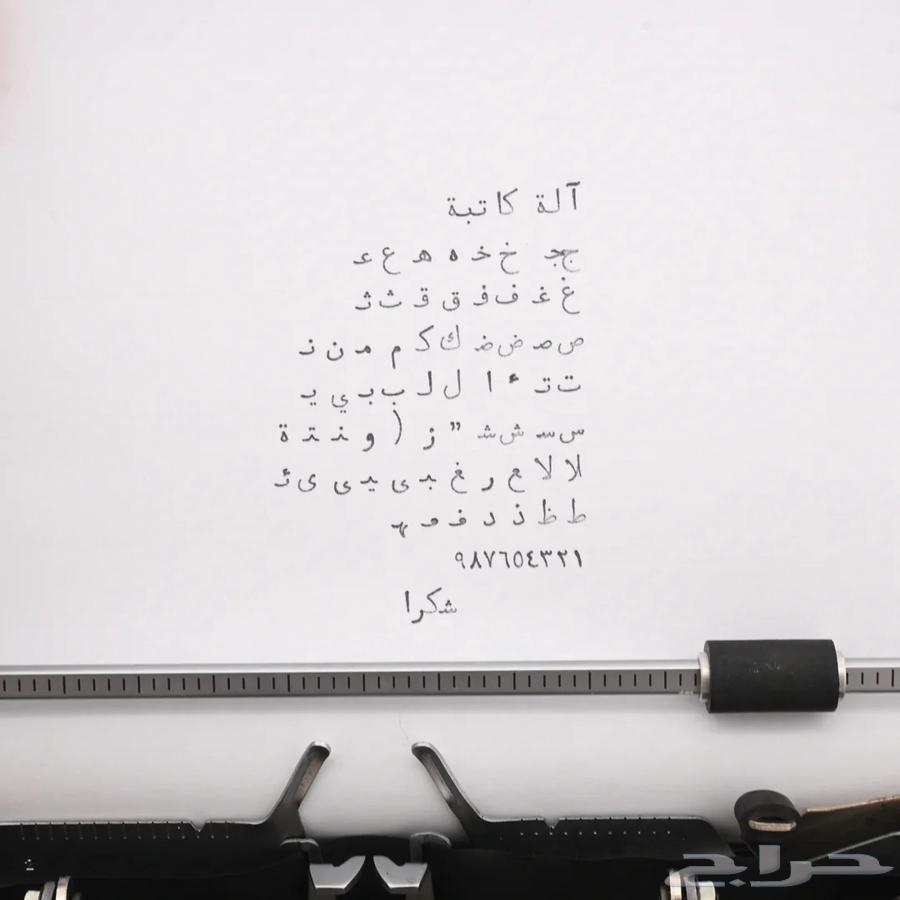 آلة كاتبة
ججـ خ خـ ه هـ ع عـ
غ غـ ف فـ ق قـ ث ثـ
ص صـ ض ضـ ك كـ م مـ ن نـ
ت تـ ء ا ل لـ ب بـ ي يـ
س سـ ش شـ " ز ( و ـنـ ـتـ ة
لا لا ع ر غ ـبـ ى ـيـ ى ى ئـ
ط ظ ذ د ـفـ ـمـ ـهـ
٩٨٧٦٥٤٣٢١
شكرا
حراج